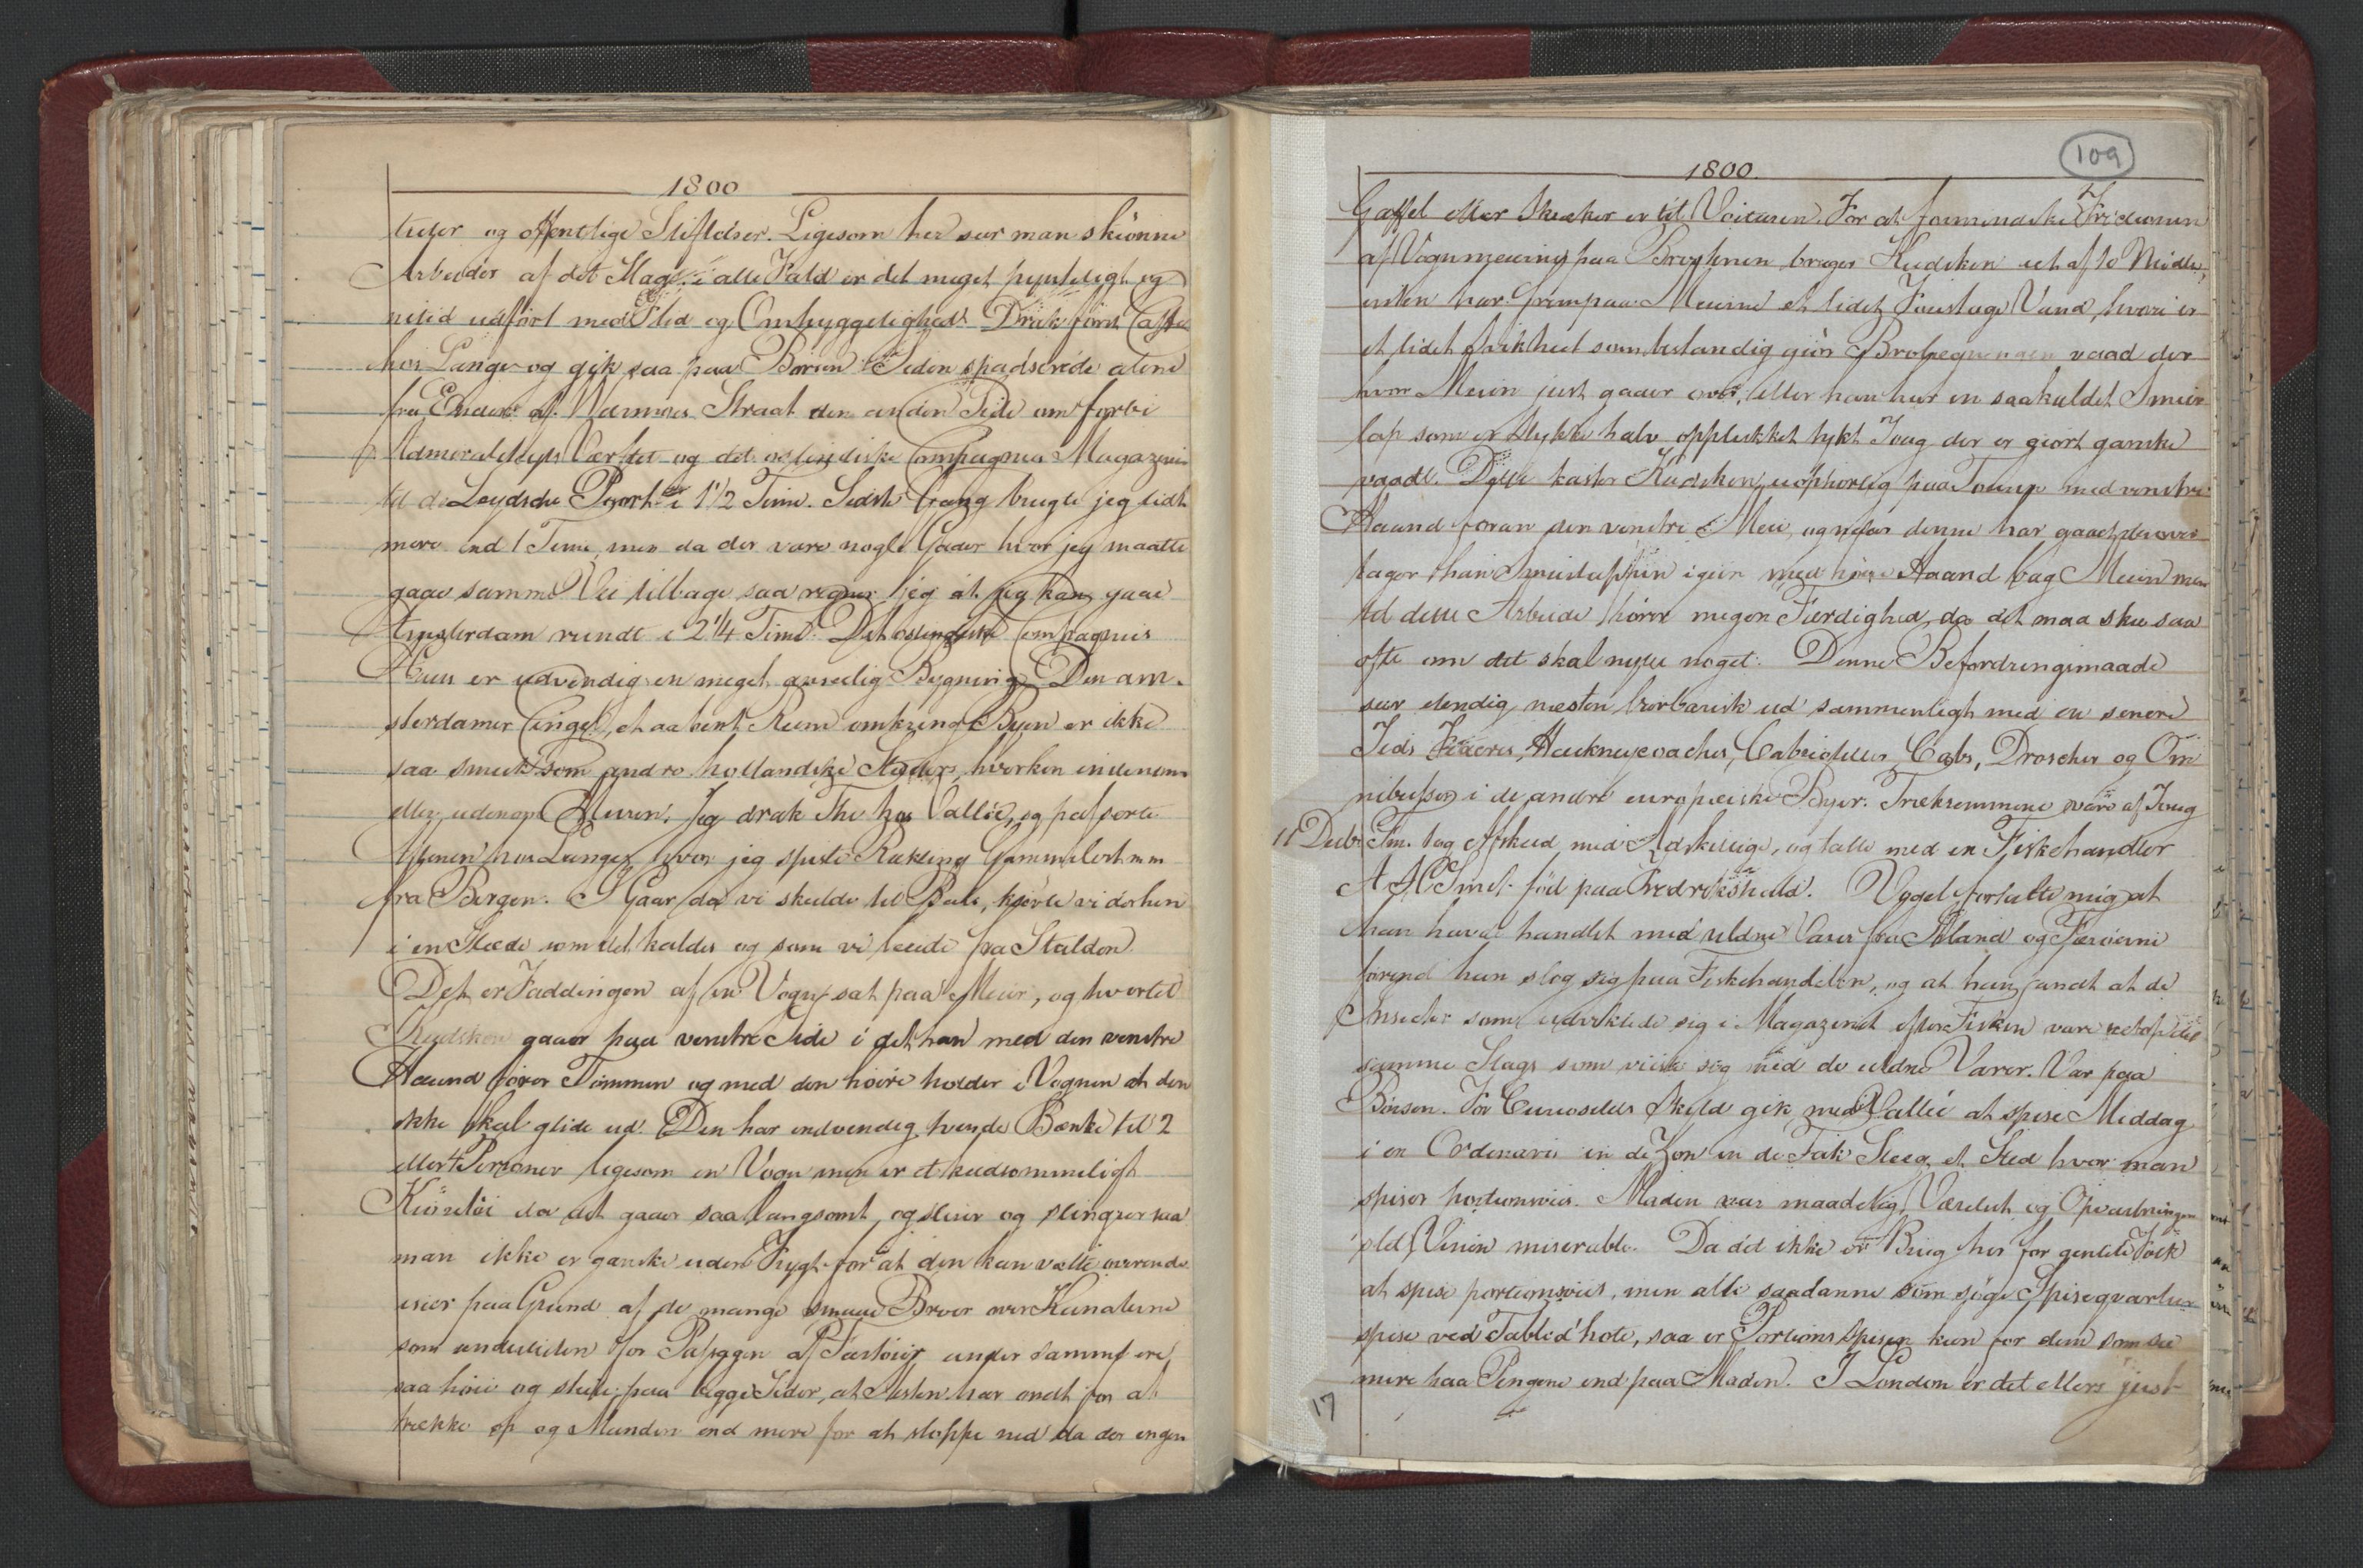 1800
tuter og offentlige Stiftelser. Ligesom her seer man skiønne
Arbeider af det Slags, i alle Fald er det meget pynteligt og
netid udført med Flid og Omhyggelighed. Drak først Caffe
hos Lange og gik saa paa Børsen. Siden spadserede alene
fra Enden af Warmoes Straat den anden Side om forbi
Admiralitets Værftet og det ostindiske Compagnies Magaziner
til de Leydsche Poort i 1 1/2 Time. Sidste Gang brugte jeg lidt
mere end 1 Time, men da der vare nogle Gader hvor jeg maatte
gaae samme Vei tilbage saa regner jeg at jeg kan gaae
Amsterdam rundt i 2 1/4 Time. Det ostindiske Compagnies
Huus er udvendig en meget anseelig Bygning. Den am-
sterdamer Cingel, et aabent Rum omkring Byen er ikke
saa smuk som andre hollandske Stæders, hverken indenom
eller udenom Muren. Jeg drak The hos Vallée, og passerte
Aftenen hos Langes, hvor jeg spiste Rækling Gammelost mm
fra Bergen. I Gaar da vi skulde til Bals, kjørte vi derhen
i en Slæde som det kaldes og som vi leiede fra Stalden
Det er Faddingen af en Vogn sat paa Meier, og hvortil
Kudsken gaaer paa venstre Side i det han med den venstre
Haand fører Tømmen og med den høire holder i Vognen at den
ikke skal glide ud. Den har indvendig tvende Bænke til 2
eller 4 Personer ligesom en Vogn men er et kiedsommeligt
Kiøretøi da det gaaer saa langsomt, og slirer og slingrer saa
man ikke er ganske uden Frygt for at den kan vælte overende
især paa Grund af de mange smaae Broer over Kanalerne
som undertiden for Passagen af Fartøier under samme ere
saa høie og steile paa begge Sider, at Hesten har ondt for at
trække op og Manden end mere for at stoppe ned da der ingen
109
1800.
Gaffel eller Skieker er til Voituren. For at formindske Frictionen
af Vognmeierne paa Broestenen bruger Kudsken eet af to Midler,
enten har han frempaa Meierne et lidet Foustage Vand, hvori er
et lidet Hul som bestandig giør Brolægningen vaad der
hvor Meien just gaaer over, eller han har en saakaldet Smør-
lap som er Stykke halv opplukket tykt Toug der er giort ganske
vaadt. Dette kaster Kudsken uophørlig paa Touge med venstre
Haand foran den venstre Mei, og naar denne har gaaet derover
tager han Smørlappen igien med høire Haand bag Meien men
til dette Arbeide hører megen Færdighed, da det maa skee saa
ofte om det skal nytte noget. Denne Befordringsmaade
seer elendig næsten barbarisk ud sammenligt med en senere
Tids Fiacres, Hackneycoaches, Cabrioletter, Cabs, Droscher og Om
nibusser i de andre europæiske Byer. Trækremmene vare af Toug
11 Decbr Tm. tog Afskeed med Adskillige, og talte med en Fiskehandler
A H Smet fød paa Fredrikshald. Vogel fortalte mig at
han havde handlet med uldne Varer fra Island og Færøerne
førend han slog sig paa Fiskehandelen, og at han fandt at de
Insecter som udviklede sig i Magazinet efter Fisken vare netop det
samme Slags som viiste sig ved de uldne Varer. Var paa
Børsen. For Curiositets Skyld gik med Vallée at spise Middag
i en Ordinaris in de Zon in de Fak Steeg et Sted hvor man
spiser portionsviis. Maden var maadelig, Værelset og Opvartningen
slet, Vinen miserable. Da det ikke er Brug her for gentile Folk
at spise portionsviis, men alle saadanne som søge Spiseqvarteer
spise ved Table d'hote, saa er Portions spisen kun for dem som see
mere paa Pengene end paa Maden. I London er det ellers just
17